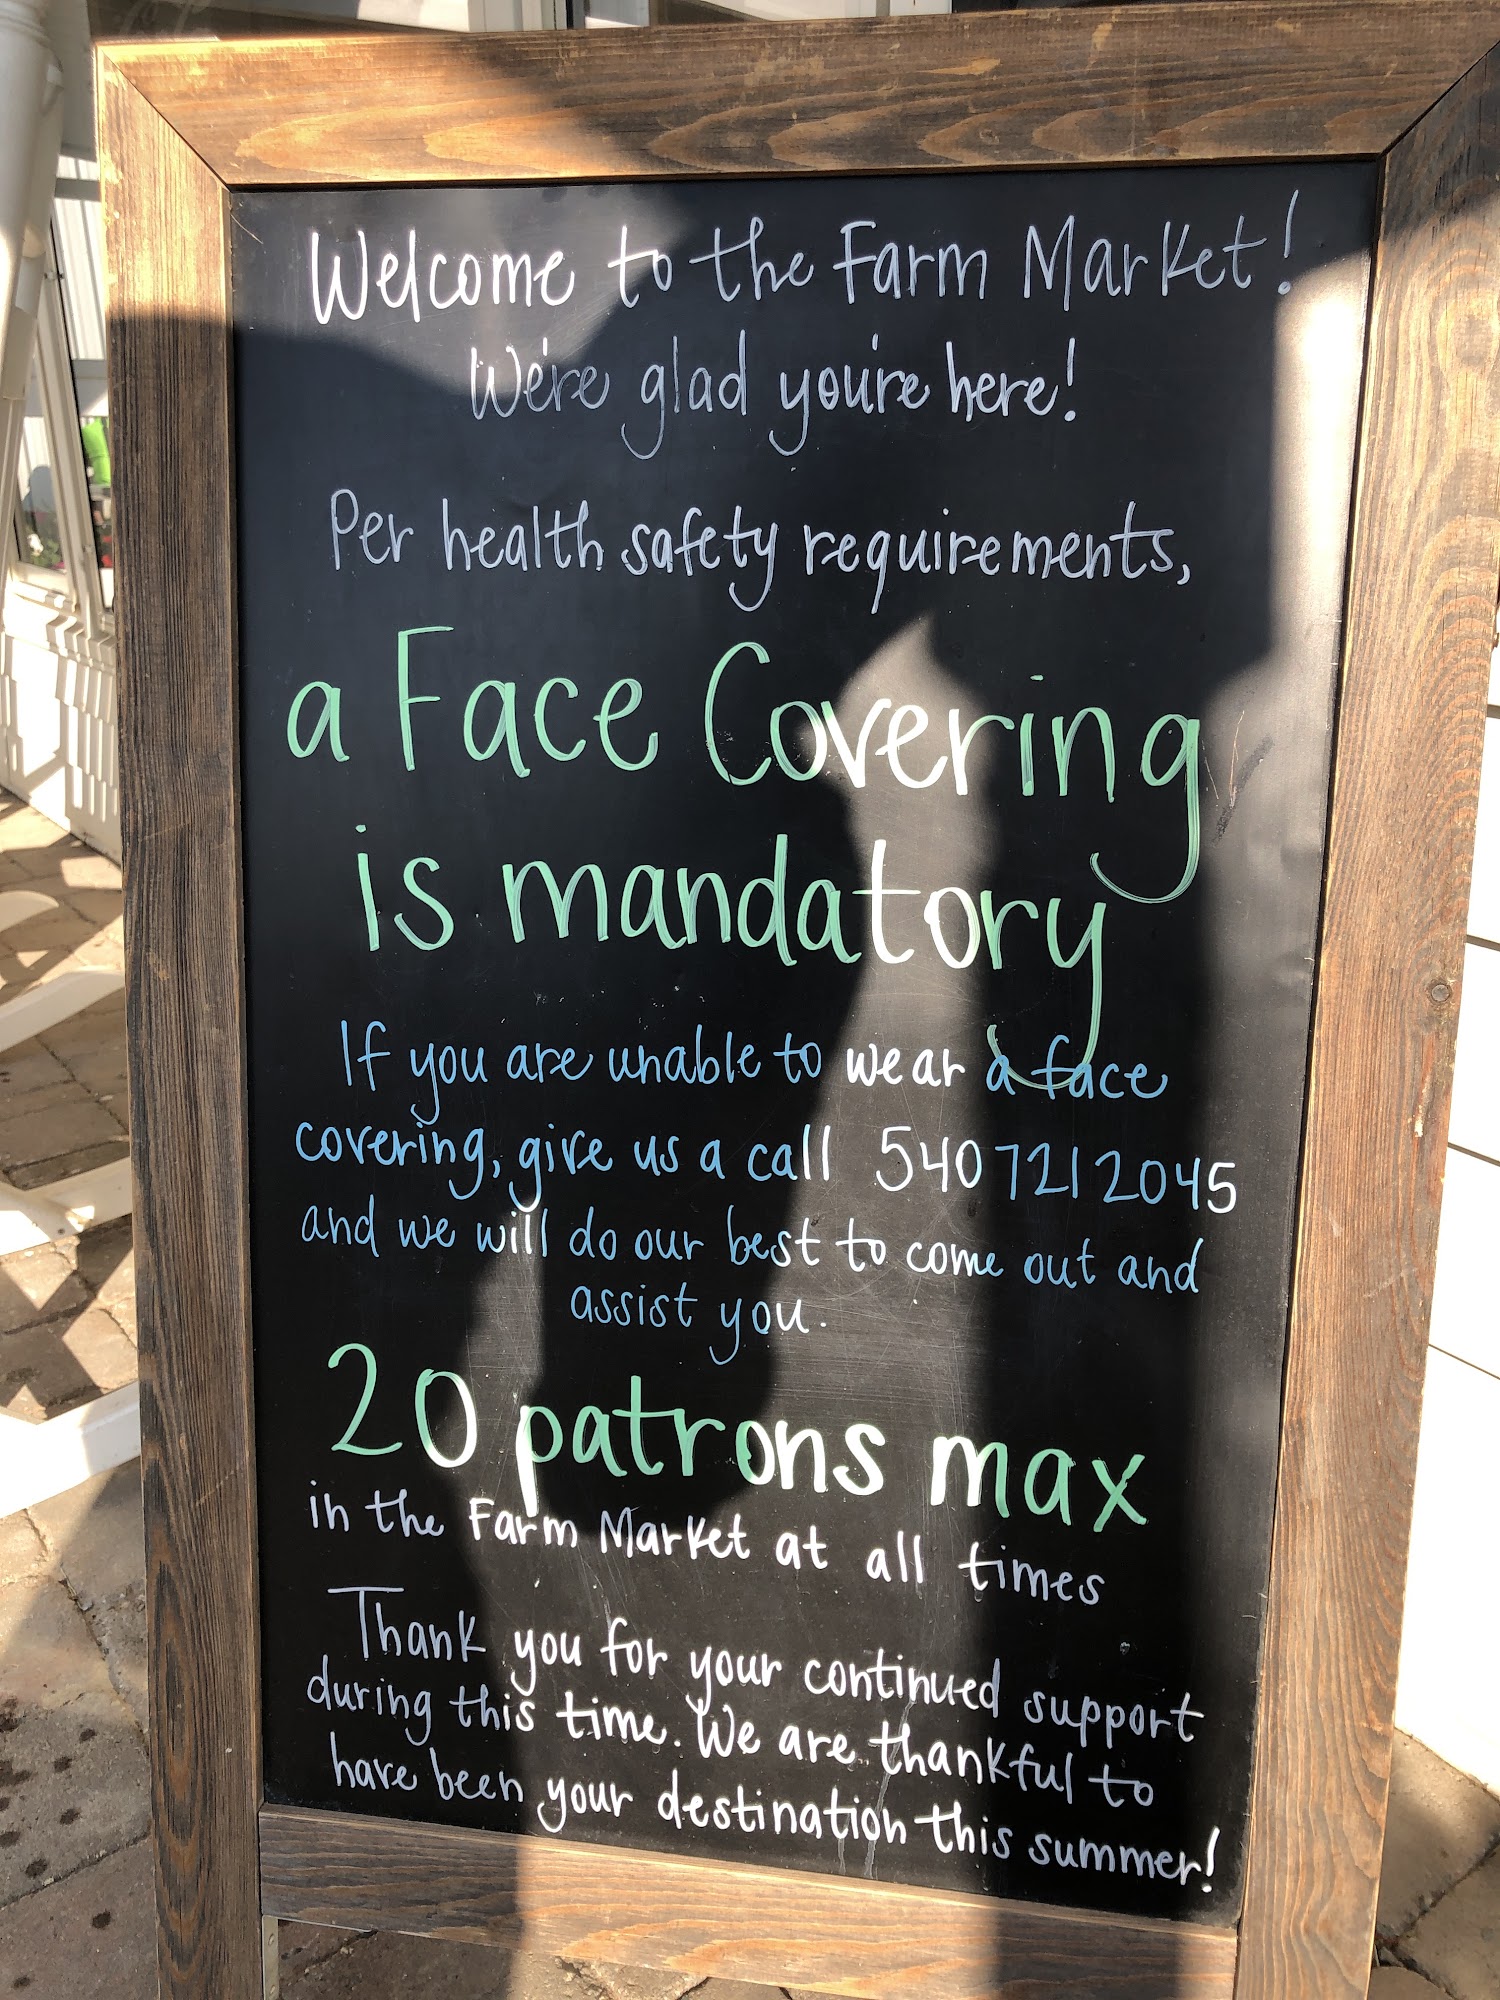 Welcome to the Farm Market!
We're glad you're here!
Per health safety requirements,
a Face Covering
is mandatory
If you are unable to wear a face
covering, give us a call 540 721 2045
and we will do our best to come out and
assist you.
20 patrons max
in the Farm Market at all times
Thank you for your continued support
during this time. We are thankful to
have been your destination this summer!